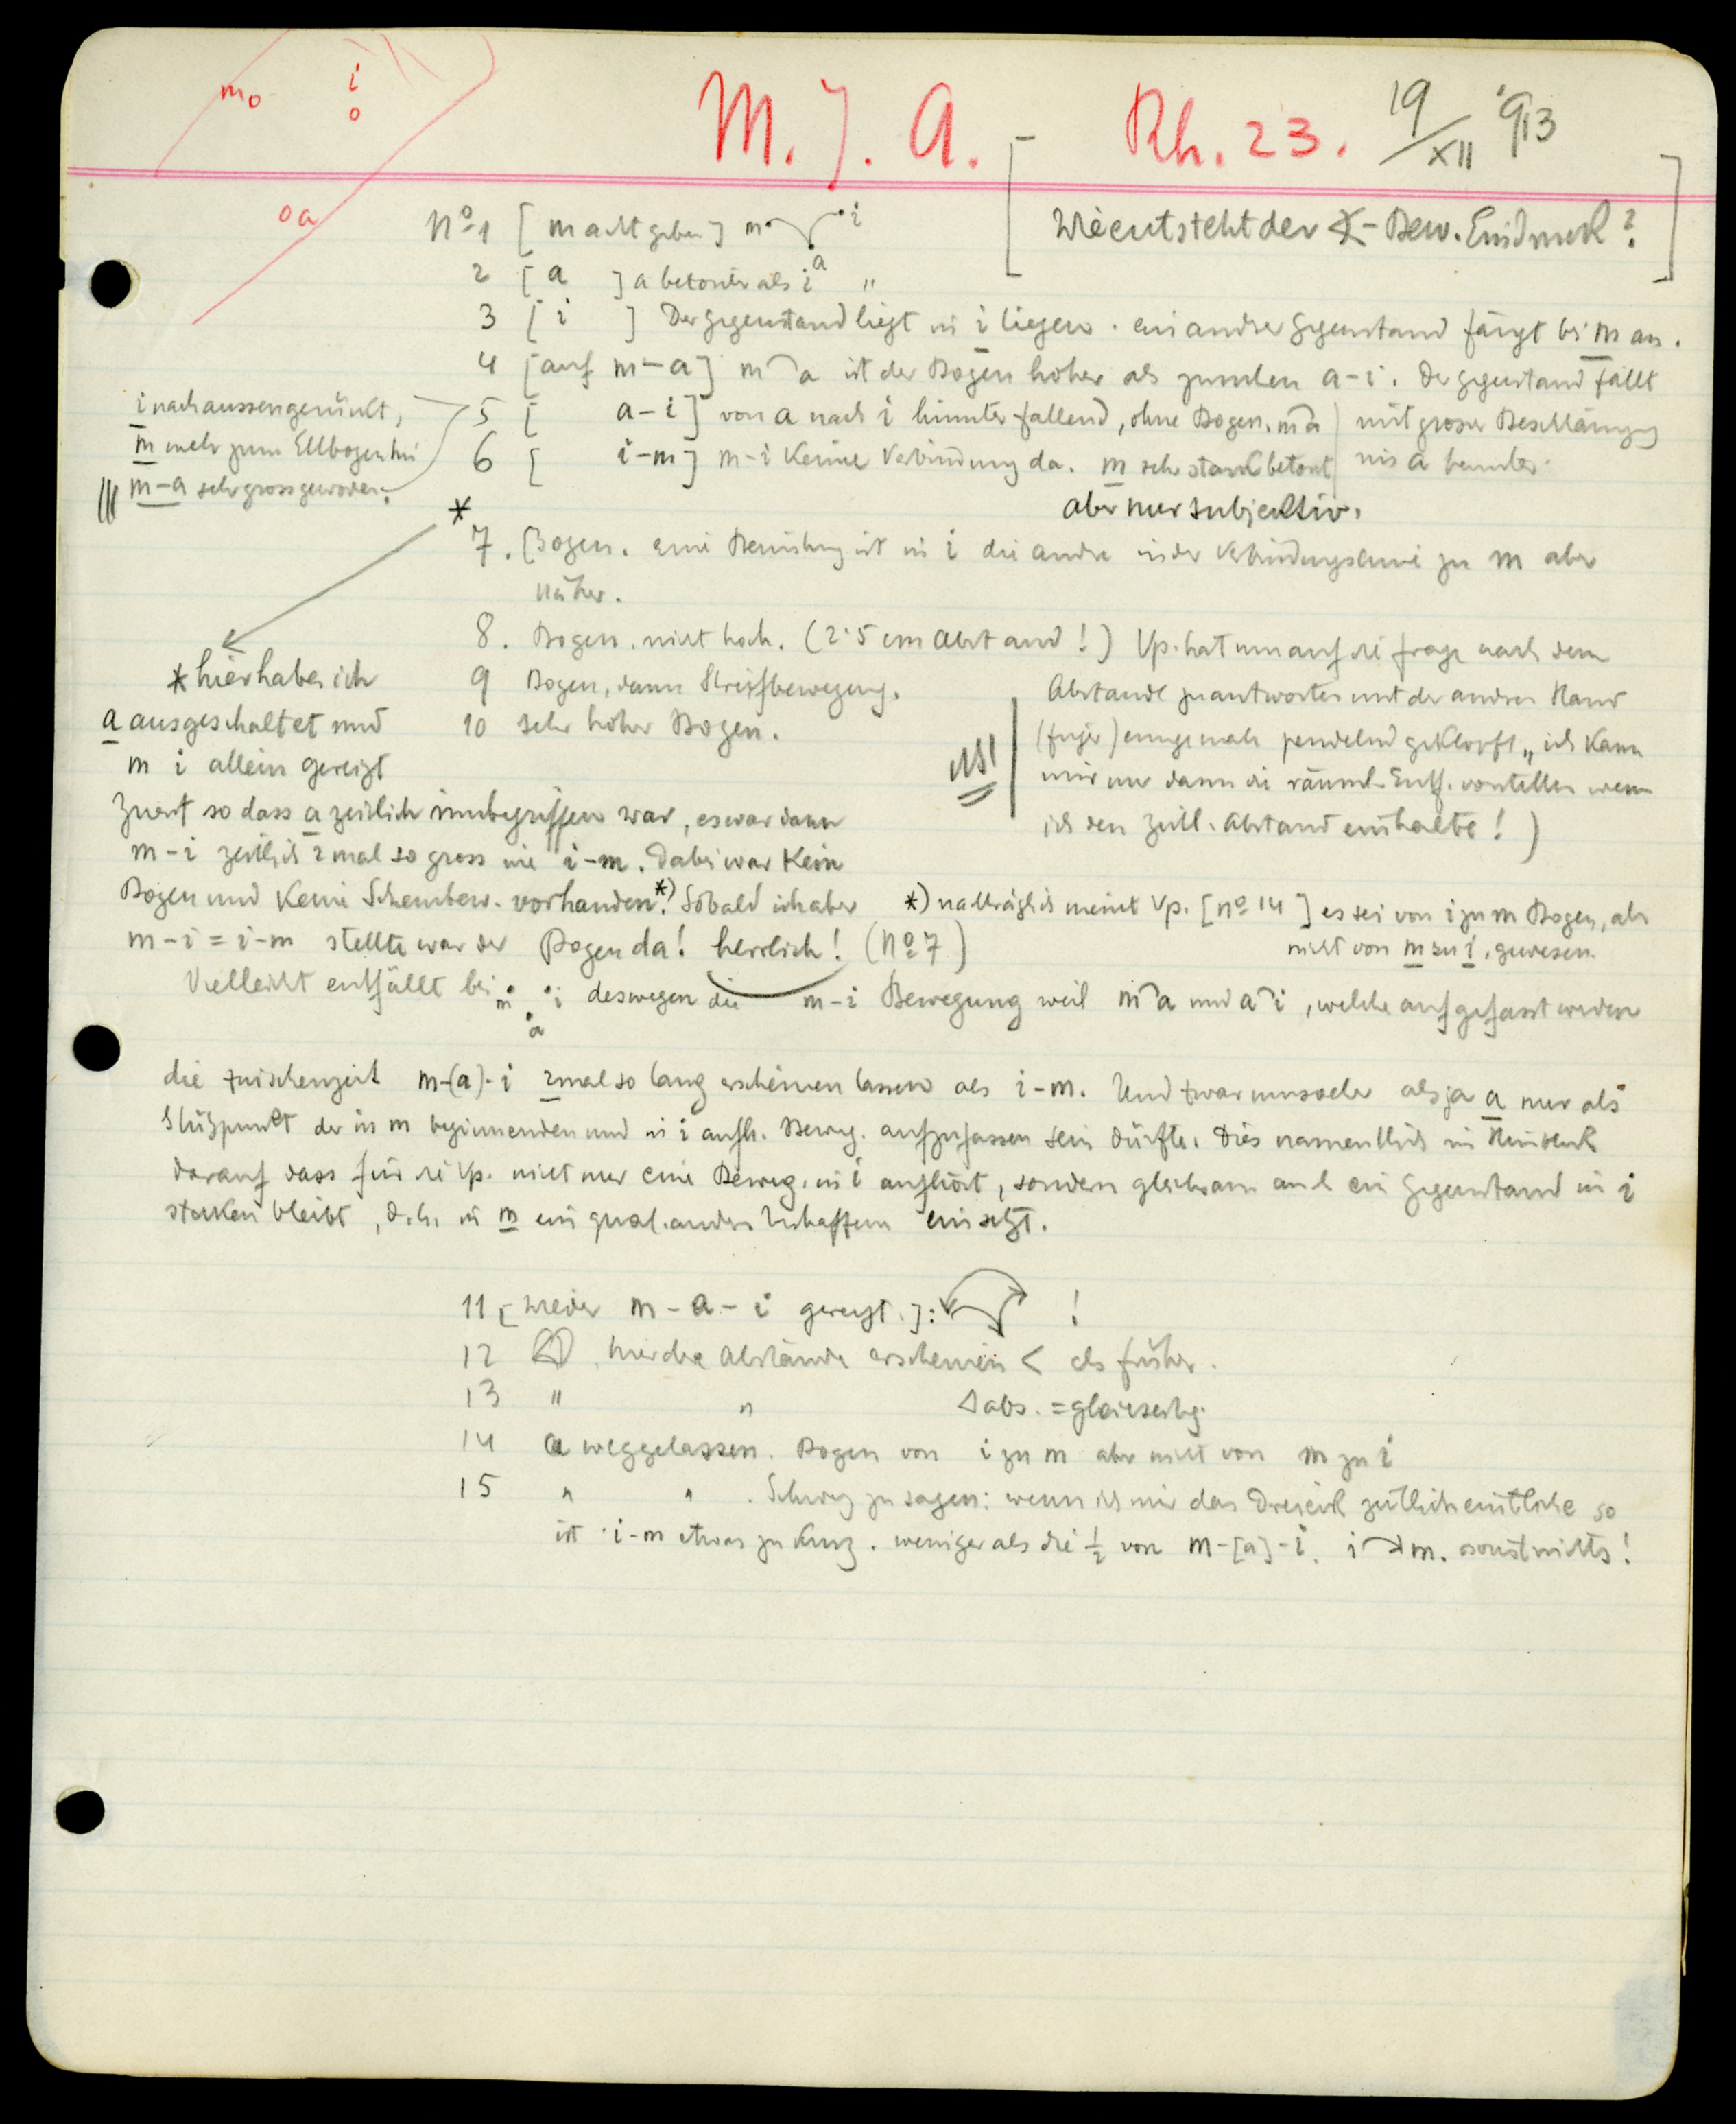 m i
M. J. A. - Rh. 23. 19/XII 913
a
[Wie entsteht der ∢-Bew. Eindruck?]
No 1 [m acht geben] m i
a
2 [a ] a betonter als i "
3 [i ] Der Gegenstand liegt in i liegen. ein andrer Gegenstand fängt bei m an.
4 [auf m-a] m⁀a ist der Bogen höher als zwischen a-i. Der Gegenstand fällt
mit grosser Beschleunigung
ins a herunter.
5 [ a-i] von a nach i hinunterfallend, ohne Bogen. m⁀a
6 [ i-m] m-i keine Verbindung da. m sehr stark betont
aber nur subjektiv.
i nach aussen gerückt,
m mehr zum Ellbogen hin
m-a sehr gross geworden.
*
7. Bogen. eine Berührung ist in i die andre in der Verbindungslinie zu m aber
näher.
8. Bogen. nicht hoch. (2·5 cm Abstand!) Vp. hat nun auf die Frage nach dem
Abstande zu antworten mit der andren Hand
(Finger) einige male pendelnd geklopft „ich kann
mir nur dann die räuml. Entf. vorstellen wenn
ich den zeitl. Abstand einhalte!)
NB!
9 Bogen, dann Streifbewegung.
10 sehr hoher Bogen.
* hier habe ich
a ausgeschaltet und
m i allein gereizt
Zuerst so dass a zeitlich inbegriffen war, es war dann
m-i zeitlich 2 mal so gross wie i-m. Dabei war kein
Bogen und keine Scheinbew. vorhanden.*) Sobald ich aber
m-i = i-m stellte war der Bogen da! herrlich! (No 7)
*) nachträglich meint Vp. [No 14] es sei von i zu m Bogen, aber
nicht von m zu i, gewesen.
Vielleicht entfällt bei m i deswegen die m-i Bewegung weil m⁀a und a⁀i, welche aufgefasst werden
a
die Zwischenzeit m-(a)-i 2mal so lang erscheinen lassen als i-m. Und zwar umsoeher als ja a nur als
Stützpunkt der in m beginnenden und in i aufh. Beweg. aufzufassen sein dürfte. Dies namentlich im Hinblick
darauf dass für die Vp. nicht nur eine Beweg. in i aufhört, sondern gleichsam auch ein Gegenstand in i
stecken bleibt, d.h. in m ein qual. andres einsetzt.
11 [wieder m-a-i gereizt.]: !
12 hier die Abstände erscheinen < als früher.
13 " " Δ abs. = gleichseitig.
14 a weggelassen. Bogen von i zu m aber nicht von m zu i
15 " " . Schwer zu sagen: wenn ich mir das Dreieck zeitlich einteile so
ist i-m etwas zu kurz. weniger als die ½ von m-[a]-i. i⁀m. sonst nichts!